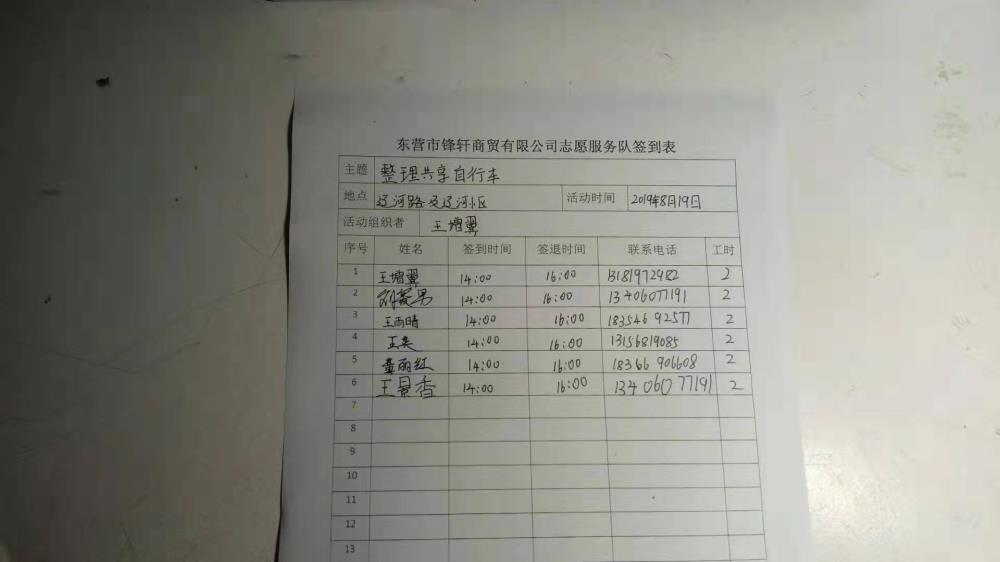 东营市锋轩商贸有限公司志愿服务队签到表
主题 整理共享自行车
地点 辽河路及辽河小区 活动时间 2019年8月19日
活动组织者 王增翼
序号 姓名 签到时间 签退时间 联系电话 工时
1 王增翼 14:00 16:00 13181972982 2
2 刘爱男 14:00 16:00 13406077191 2
3 王雨晴 14:00 16:00 18354692577 2
4 王英 14:00 16:00 13156819085 2
5 董丽红 14:00 16:00 18366906608 2
6 王景香 14:00 16:00 13406077191 2
7
8
9
10
11
12
13